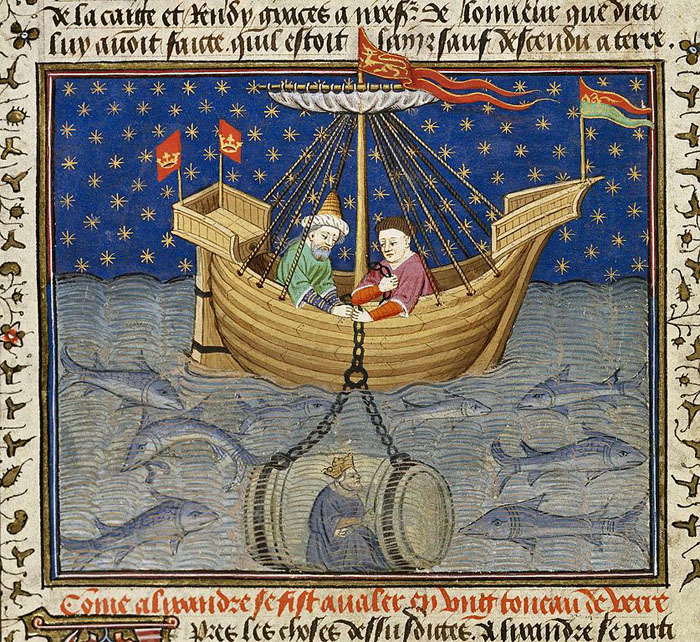 de la caige et Rendy graces a n̄r̄e s̄r̄ de lonneur que dieu
luy auoit faicte quil estoit sain et sauf descendu a terre.
Come alixandre se fist aualer en vng toneau de verre
pres les choses dessusdictes. Alixandre se parti